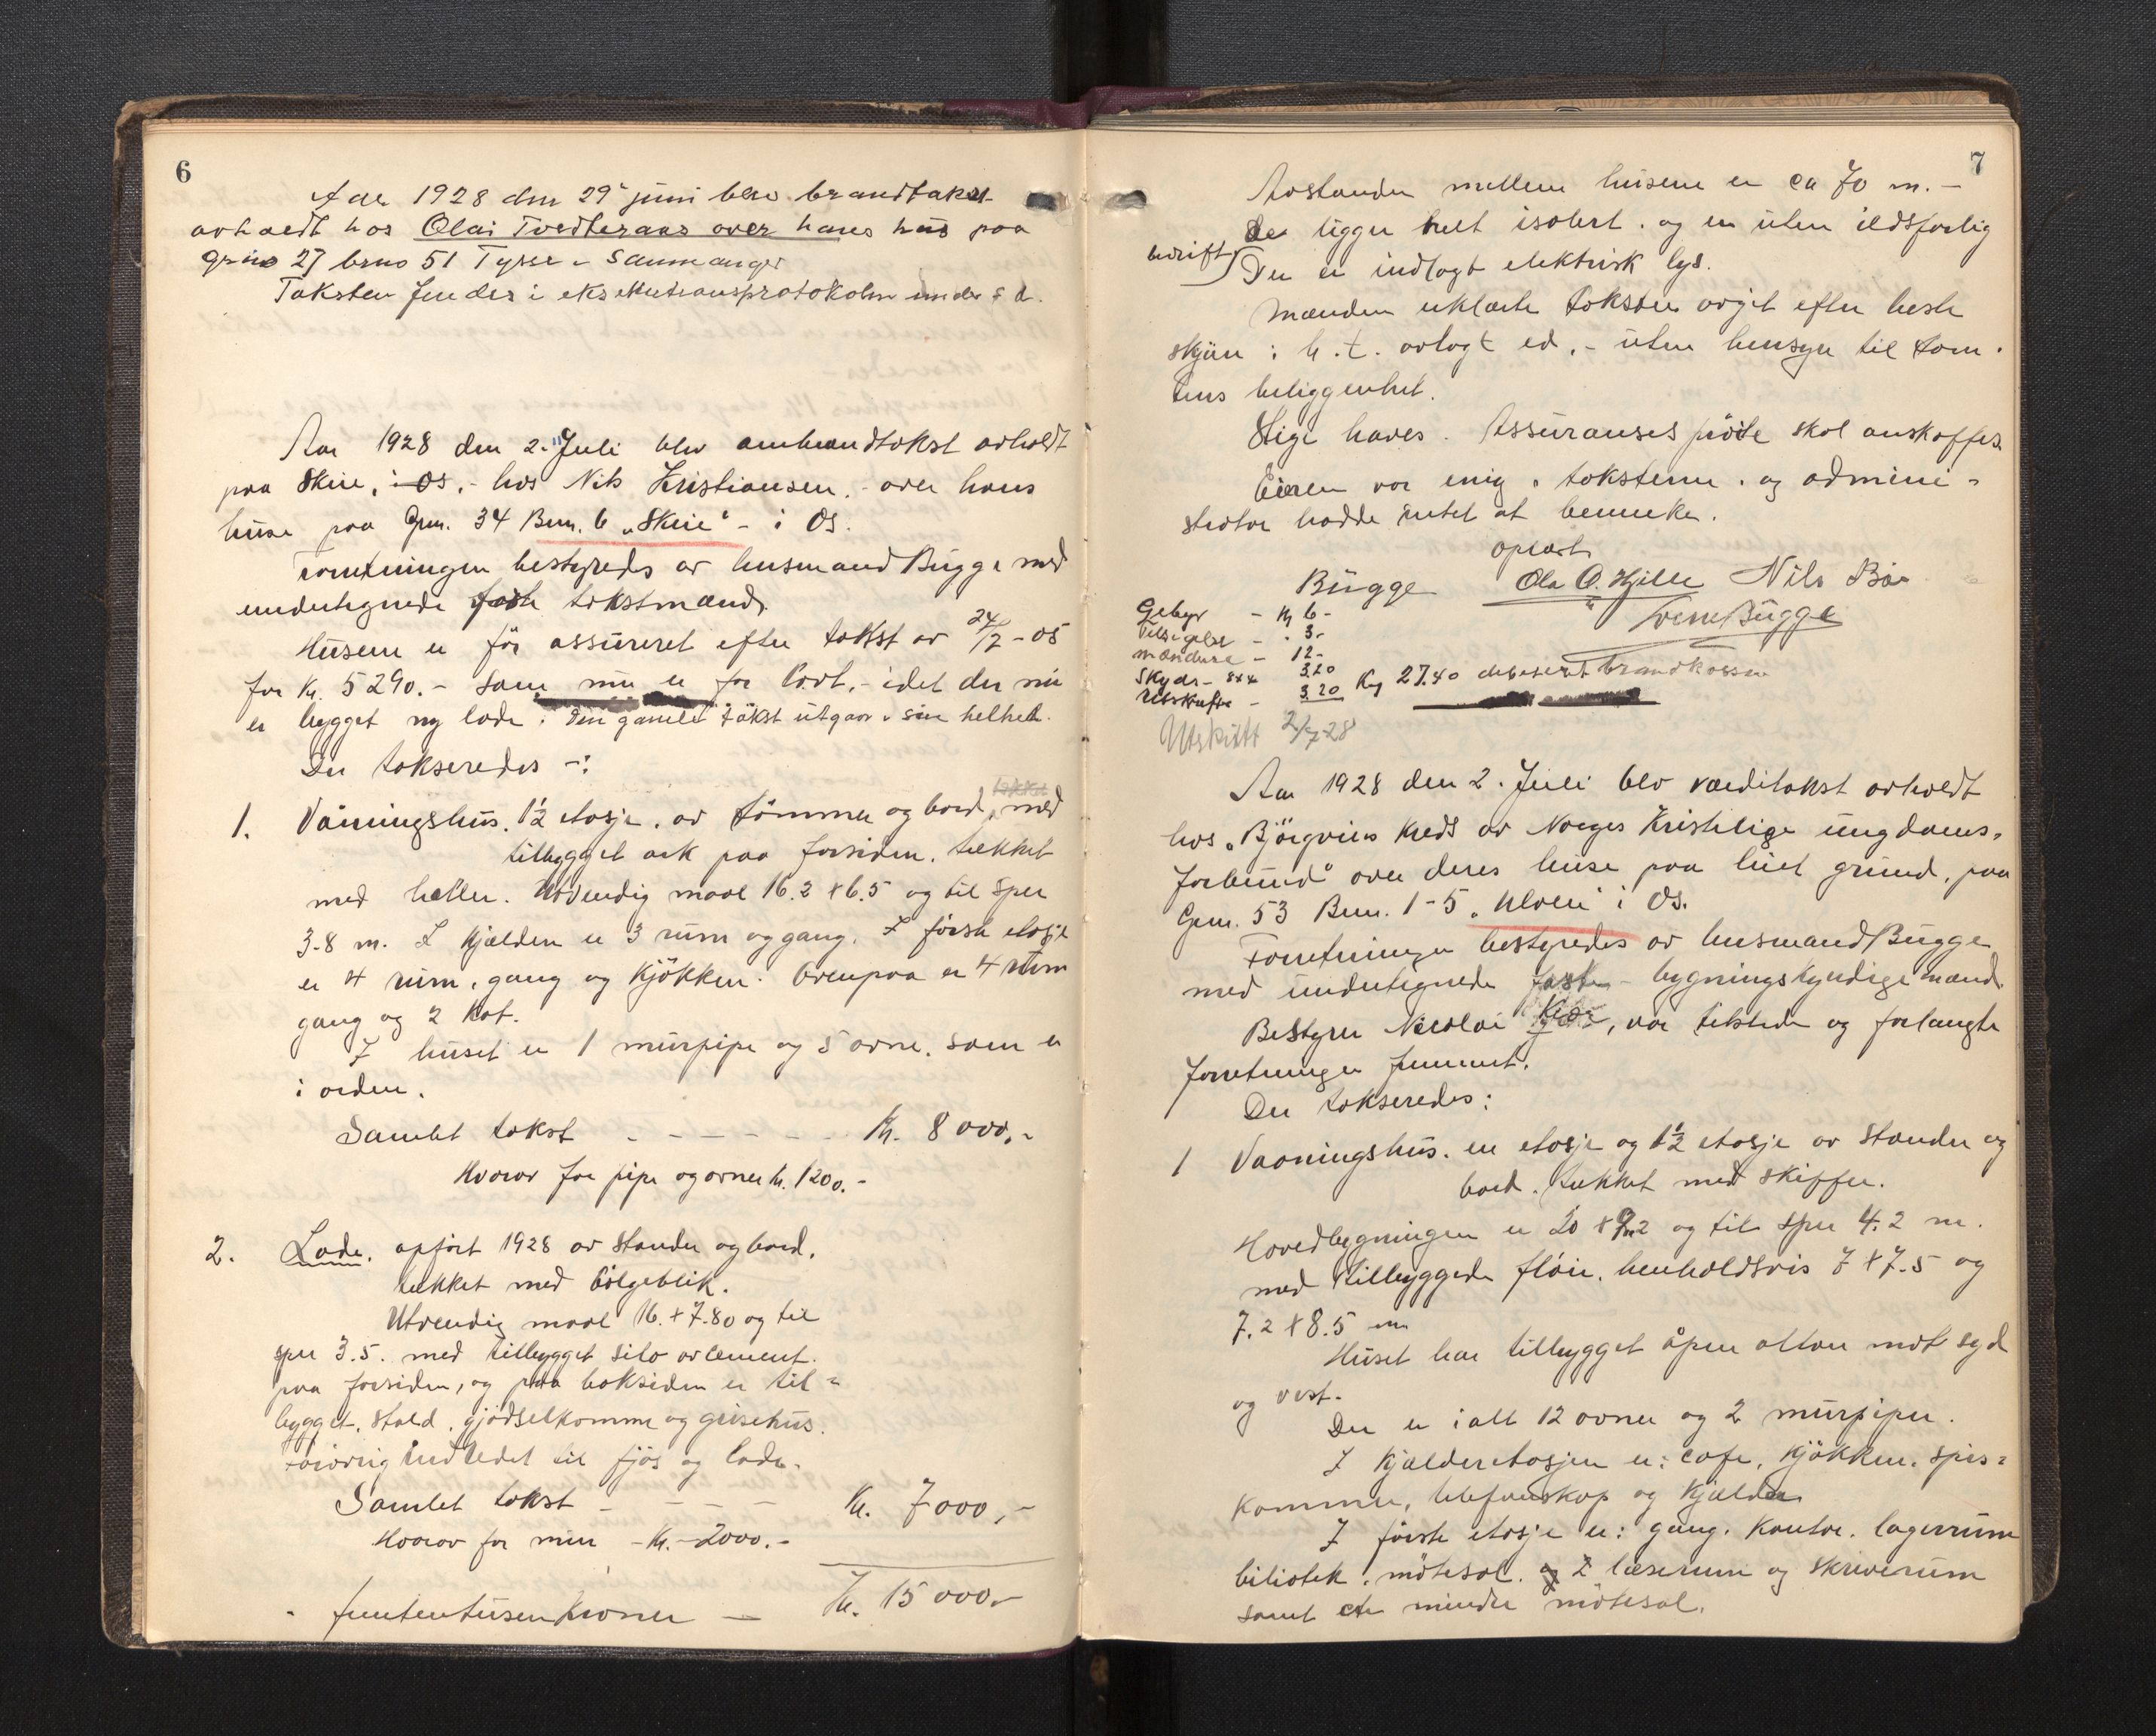 6
Aar 1928 den 29 juni blev brandtakst
avholdt hos Olai Tvedteraas over hans hus paa
grno 27 brno 51 Tysse i Samnanger
Taksten findes i eksekutionsprotokolen under s d.
Aar 1928 den 2. Juli blev ombrandtakst avholdt
paa Skeie, i Os, - hos Nils Kristiansen, - over hans
huse paa Gnr. 34 Bnr. 6 „Skeie" - i Os.
Forretningen bestyredes av lensmand Bugge med
undertegnede faste takstmænd.
Husene er før assureret efter takst av 24/7 - 05
for kr. 5290.- som nu er for lavt, - idet der nu
er bygget ny lade. Den gamle takst utgaar i sin helhet.
Der takseredes -:
1. Vaaningshus. 1½ etasje. av tømmer og bord, med
tilbygget ark paa forsiden. tækket
med heller. Utvendig maal 16.2 x 6.5 og til sper
3.8 m. I kjælderen er 3 rum og gang. I første etasje
er 4 rum, gang og kjøkken. Ovenpaa er 4 rum
gang og 2 kot.
I huset er 1 murpipe og 5 ovne. som er
i orden.
Samlet takst - - - - - - kr. 8000.-
Hvorav for pipe og ovner kr. 1200.-
2. Lade. opført 1928 av stender og bord.
tækket med bølgeblik.
Utvendig maal 16. x 7.80 og til
sper 3.5. med tilbygget silo av cement.
paa forsiden, og paa baksiden er til-
bygget. stald, gjødselkomme og grisehus.
Forøvrig indredet til fjøs og lade.
Samlet takst - - - - kr. 7000,-
Hvorav for mur - kr. - 2000.-
kr. 15 000.-
femtentusen kroner -
7
Avstanden mellem husene er ca 70 m. -
De ligger helt isolert. og er uten ildsfarlig
bedrift) Der er indlagt elektrisk lys.
Mænden erklærte taksten avgit efter beste
skjøn i h.t. avlagt ed, - uten hensyn til tom-
tens beliggenhet.
Stige haves. Assuransesprøite skal anskaffes
Eieren var enig i taksterne. og admini-
strator hadde intet at bemerke.
oplæst
Bugge Ola O. Hjelle Nils Bø
Sverre Bugge
Gebyr - kr 6 -
Tilsigelse - . 3.-
mændene - 12 -
Skyds - 8x4 3.20
Utskrifter - 3.20 Kr 27.40 debitert brandkassen
Utskrift 2/7-28
Aar 1928 den 2. Juli blev værditakst avholdt
hos „Bjørgvins Kreds av Norges Kristelige ungdoms-
forbund" over deres huse paa leiet grund, paa
Gnr. 53 Bnr. 1-5 „Ulven" i Os.
Forretningen bestyredes av lensmand Bugge
med undertegnede faste - bygningskyndige mænd.
Bestyrer Nicolai , var tilstede og forlangte
forretningen fremmet.
Der takseredes:
1 Vaaningshus. en etasje og 1½ etasje av stender og
bord. tækket med skiffer.
Hovedbygningen er 20 x 9.2 og til sper 4.2 m.
med tilbyggede fløie. henholdsvis 7 x 7.5 og
7.2 x 8.5 m
Huset har tilbygget åpen altan mot syd
og vest.
Der er ialt 12 ovner og 2 murpiper.
I kjælderetasjen er: cafe, kjøkken. spis-
kammer, telefonskap og kjælder
I første etasje er: gang. kontor. lagerrum
biliotek. møtesal. og 2 læserum og skriverum
samt en mindre møtesal.